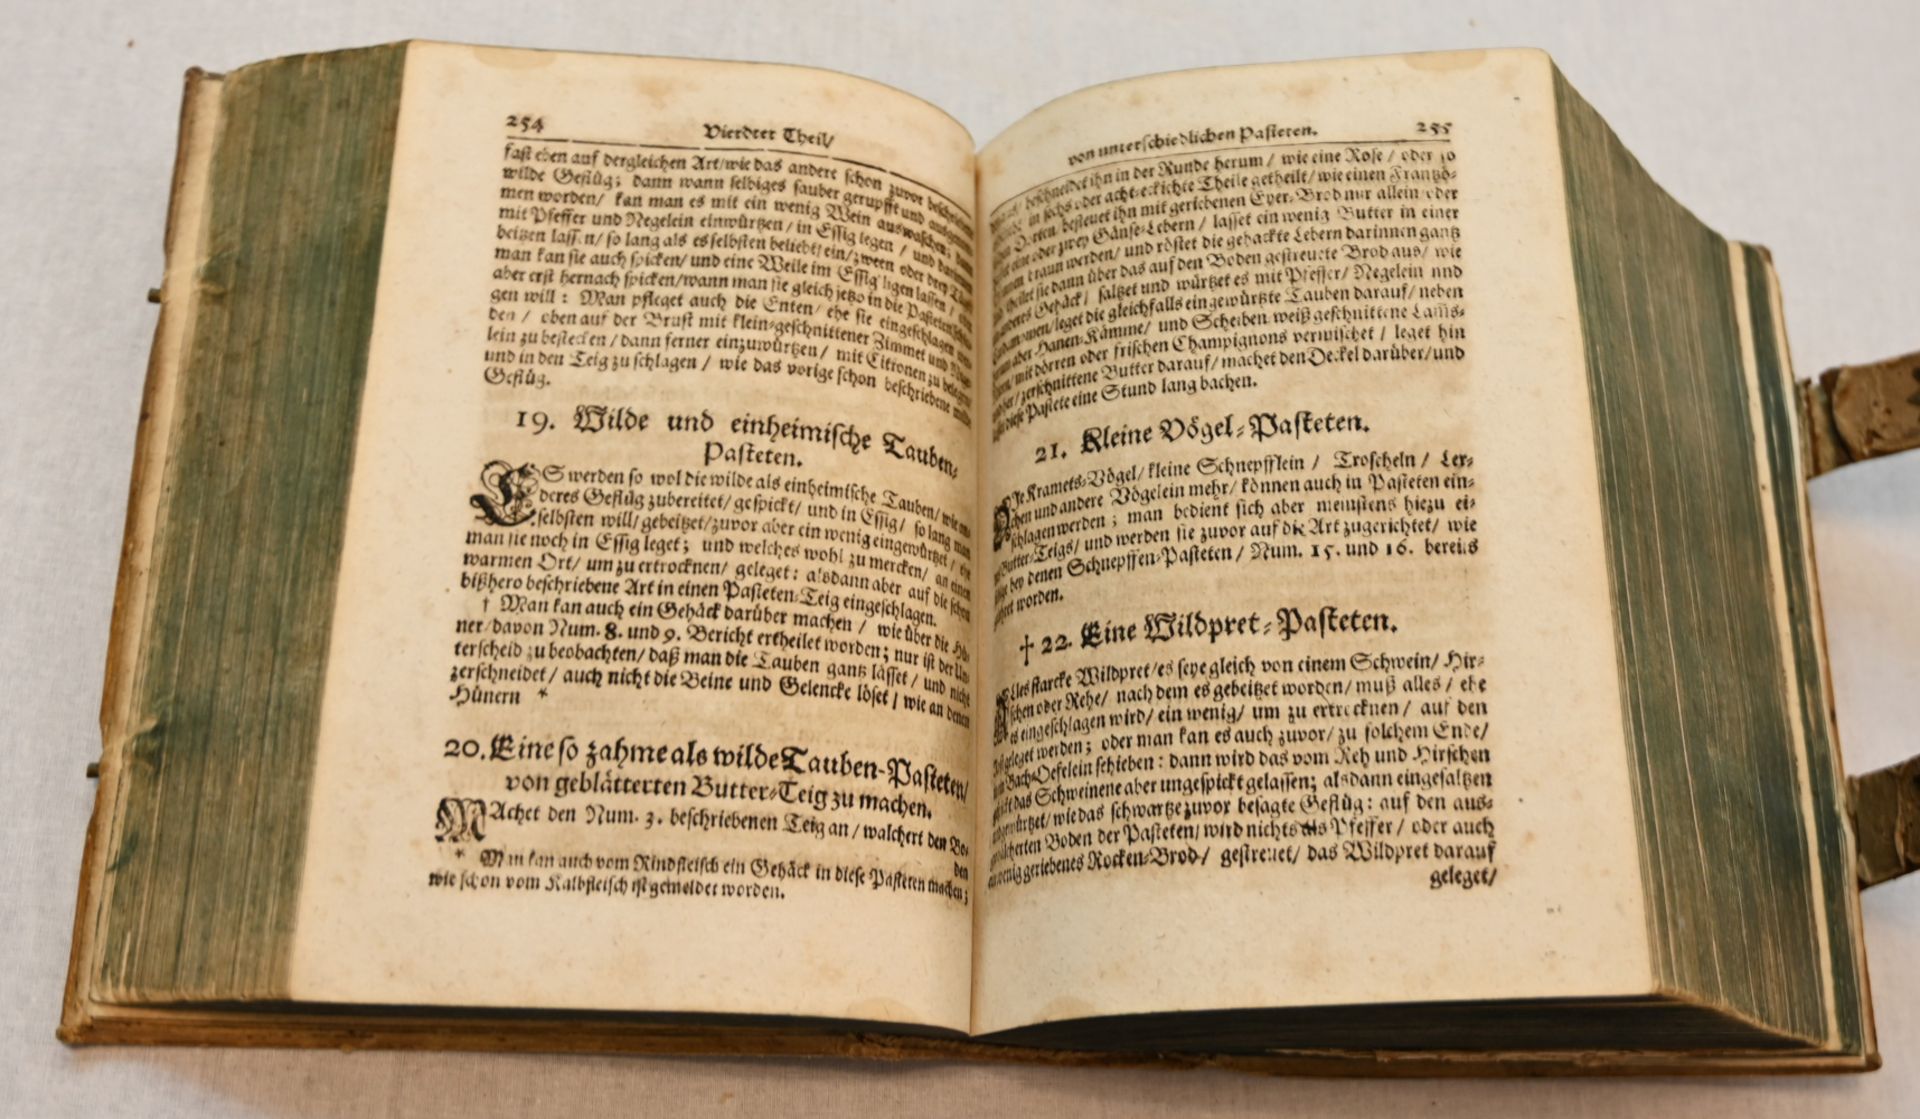 254 Vierdter Theil/
fast eben auf dergleichen Art/wie das andere schon zuvor beschriebene
wilde Geflüg; dann wann selbiges sauber gerupfft und ausgenom-
men worden/ kan man es mit ein wenig Wein auswaschen; dann
mit Pfeffer und Negelein einwürtzen/ in Essig legen / und darinnen
beitzen lassen/ so lang als es selbsten beliebt/ ein/ zween oder drey Täge:
man kan sie auch spicken/ und eine Weile im Essig ligen lassen /
aber erst hernach spicken/wann man sie gleich jetzo in die Pasteten
gen will: Man pfleget auch die Enten/ ehe sie eingeschlagen wer-
den / oben auf der Brust mit klein-geschnittener Zimmet und Nege-
lein zu bestecken / dann ferner einzuwürtzen / mit Citronen zu belegen/
und in den Teig zu schlagen / wie das vorige schon beschriebene wilde
Geflüg.
19. Wilde und einheimische Tauben-
Pasteten.
ES werden so wol die wilde als einheimische Tauben/ wie an-
deres Geflüg zubereitet/ gespickt/ und in Essig/ so lang man
selbsten will/ gebeitzet/zuvor aber ein wenig eingewürtzet / ehe
man sie noch in Essig leget; und welches wohl zu mercken/ an einen
warmen Ort/ um zu ertrocknen/ geleget: alsdann aber auf die schon
bißhero beschriebene Art in einen Pasteten-Teig eingeschlagen.
† Man kan auch ein Gehäck darüber machen / wie über die Hü-
ner/davon Num. 8. und 9. Bericht ertheilet worden; nur ist der Un-
terscheid zu beobachten/ daß man die Tauben gantz lässet / und nicht
zerschneidet/ auch nicht die Beine und Gelencke löset / wie an denen
Hünern *
20. Eine so zahme als wilde Tauben-Pasteten/
von geblätterten Butter-Teig zu machen.
MAchet den Num. 3. beschriebenen Teig an / walchert den Bo-
den
* Man kan auch vom Rindfleisch ein Gehäck in diese Pasteten machen;
wie schon vom Kalbfleisch ist gemeldet worden.
von unterschiedlichen Pasteten. 255
beschneidet ihn in der Runde herum / wie eine Rose / oder so
in sechs oder acht-eckichte Theile getheilt/ wie einen Frantzö-
Dorten/ besteuet ihn mit geriebenen Eyer-Brod nur allein oder
eine oder zwey Gänse-Lebern / lasset ein wenig Butter in einer
braun werden/ und röstet die gehackte Lebern darinnen gantz
sie dann über das auf den Boden gestreute Brod aus/ wie
anderes Gehäck/ saltzet und würtzet es mit Pfeffer/ Negelein und
Cardamomen/leget die gleichfalls eingewürtzte Tauben darauf/ neben
aber Hanen-Kämme/ und Scheiben-weiß geschnittene Lamms-
mit dörren oder frischen Champignons vermischet / leget hin
zerschnittene Butter darauf/ machet den Deckel darüber/und
diese Pastete eine Stund lang bachen.
21. Kleine Vögel-Pasteten.
DIe Kramets-Vögel/ kleine Schnepfflein / Troscheln / Ler-
chen und andere Vögelein mehr/ können auch in Pasteten ein-
schlagen werden; man bedient sich aber meinstens hiezu ei-
Butter-Teigs/ und werden sie zuvor auf die Art zugerichtet/ wie
bey denen Schnepffen-Pasteten / Num. 15. und 16. bereits
worden.
† 22. Eine Wildpret-Pasteten.
ALles starcke Wildpret/es seye gleich von einem Schwein/ Hir-
schen oder Rehe/ nach dem es gebeitzet worden/ muß alles / ehe
es eingeschlagen wird/ ein wenig/ um zu ertrocknen / auf den
geleget werden; oder man kan es auch zuvor/ zu solchem Ende/
Bach-Oefelein schieben: dann wird das vom Reh und Hirschen
das Schweinene aber ungespickt gelassen; alsdann eingesaltzen
wie das schwartze zuvor besagte Geflüg: auf den aus-
Boden der Pasteten/ wird nichts als Pfeffer / oder auch
wenig geriebenes Rocken-Brod/ gestreuet/ das Wildpret darauf
geleget/